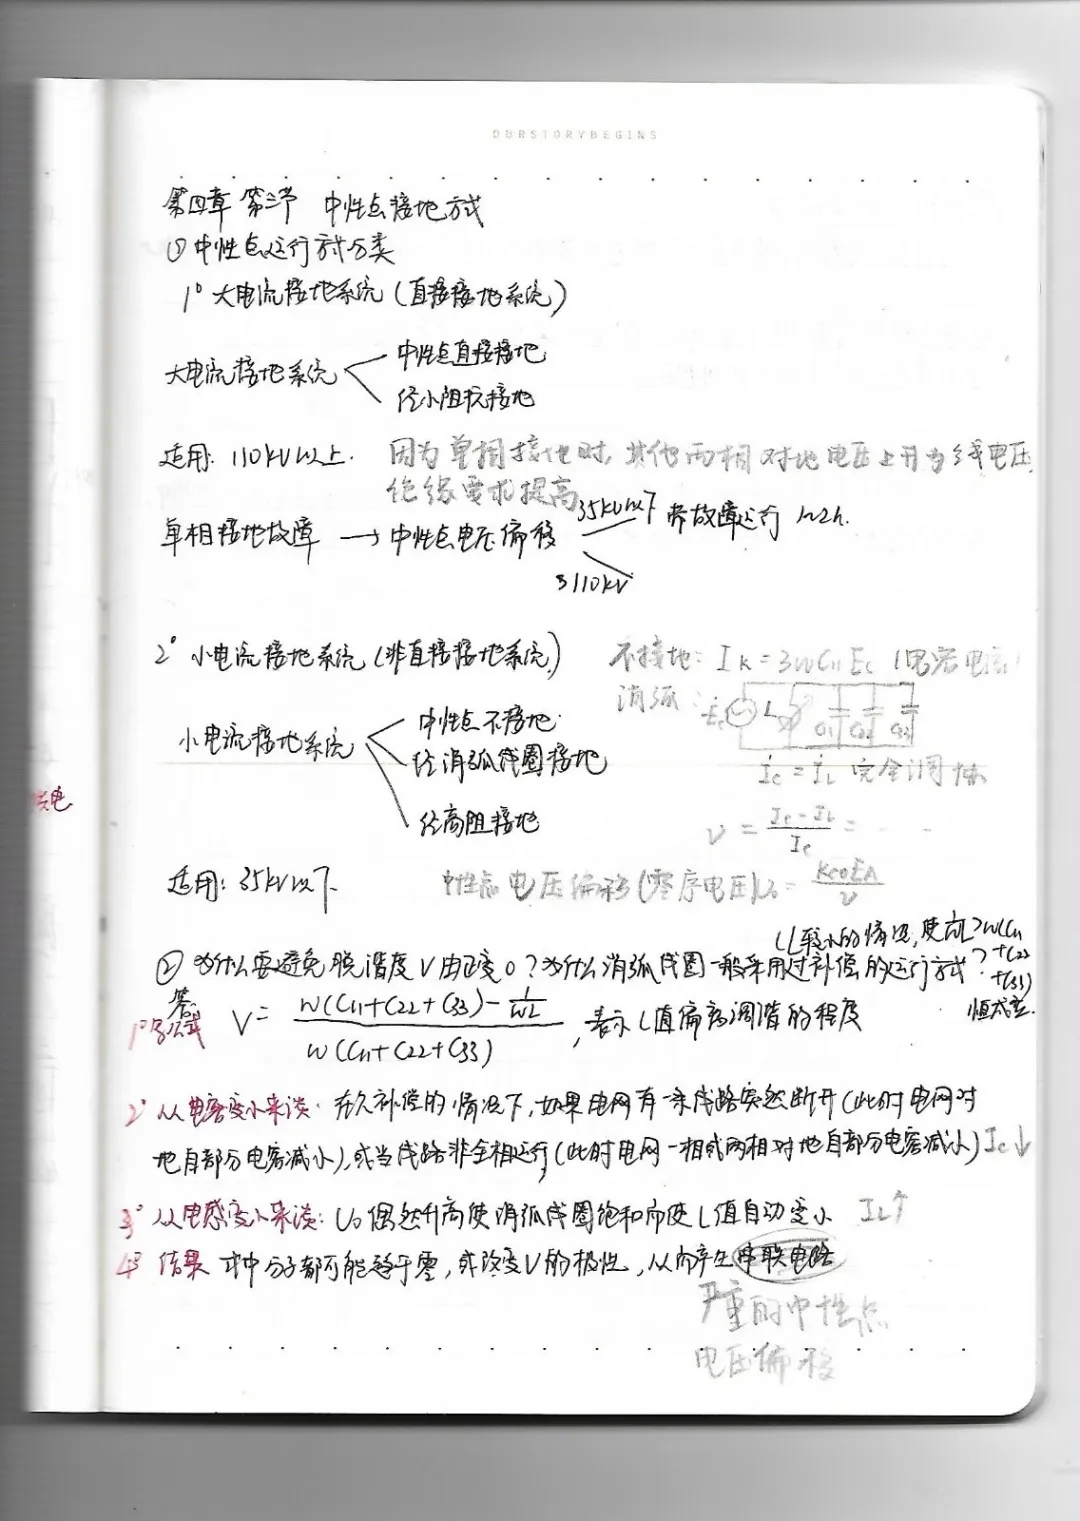 OURSTORYBEGINS
第四章 第三节 中性点接地方式
① 中性点运行方式分类
1° 大电流接地系统（直接接地系统）
大电流接地系统
中性点直接接地
经小阻抗接地
适用: 110kV以上. 因为单相接地时, 其他两相对地电压上升为线电压
绝缘要求提高
单相接地故障 → 中性点电压偏移 35kV以下 带故障运行 1~2h.
110kV
2° 小电流接地系统（非直接接地系统）
不接地: IK = 3WC11EC (电容电流)
消弧: L C11 C22 C33
小电流接地系统
中性点不接地
经消弧线圈接地
经高阻接地
İC = İL 完全调谐
V = (IC - IL)/IC =
适用: 35kV以下. 中性点电压偏移(零序电压)U0 = KC0EA/V
② 为什么要避免脱谐度V由正变0? 为什么消弧线圈一般采用过补偿的运行方式?
(L较小的情况, 使 1/WL>W(C11+C22+C33) 恒成立.
答:
1° 写公式 V = (W(C11+C22+C33) - 1/WL)/(W(C11+C22+C33)), 表示L值偏离调谐的程度
2° 从电容变小来谈: 在欠补偿的情况下, 如果电网有一条线路突然断开(此时电网对
地自部分电容减小), 或当线路非全相运行(此时电网一相或两相对地自部分电容减小) IC↓
3° 从电感变小来谈: U0偶然升高使消弧线圈饱和而使L值自动变小 IL↑
4° 结果 式中分子都可能趋于零, 或改变V的极性, 从而产生串联电路
严重的中性点
电压偏移